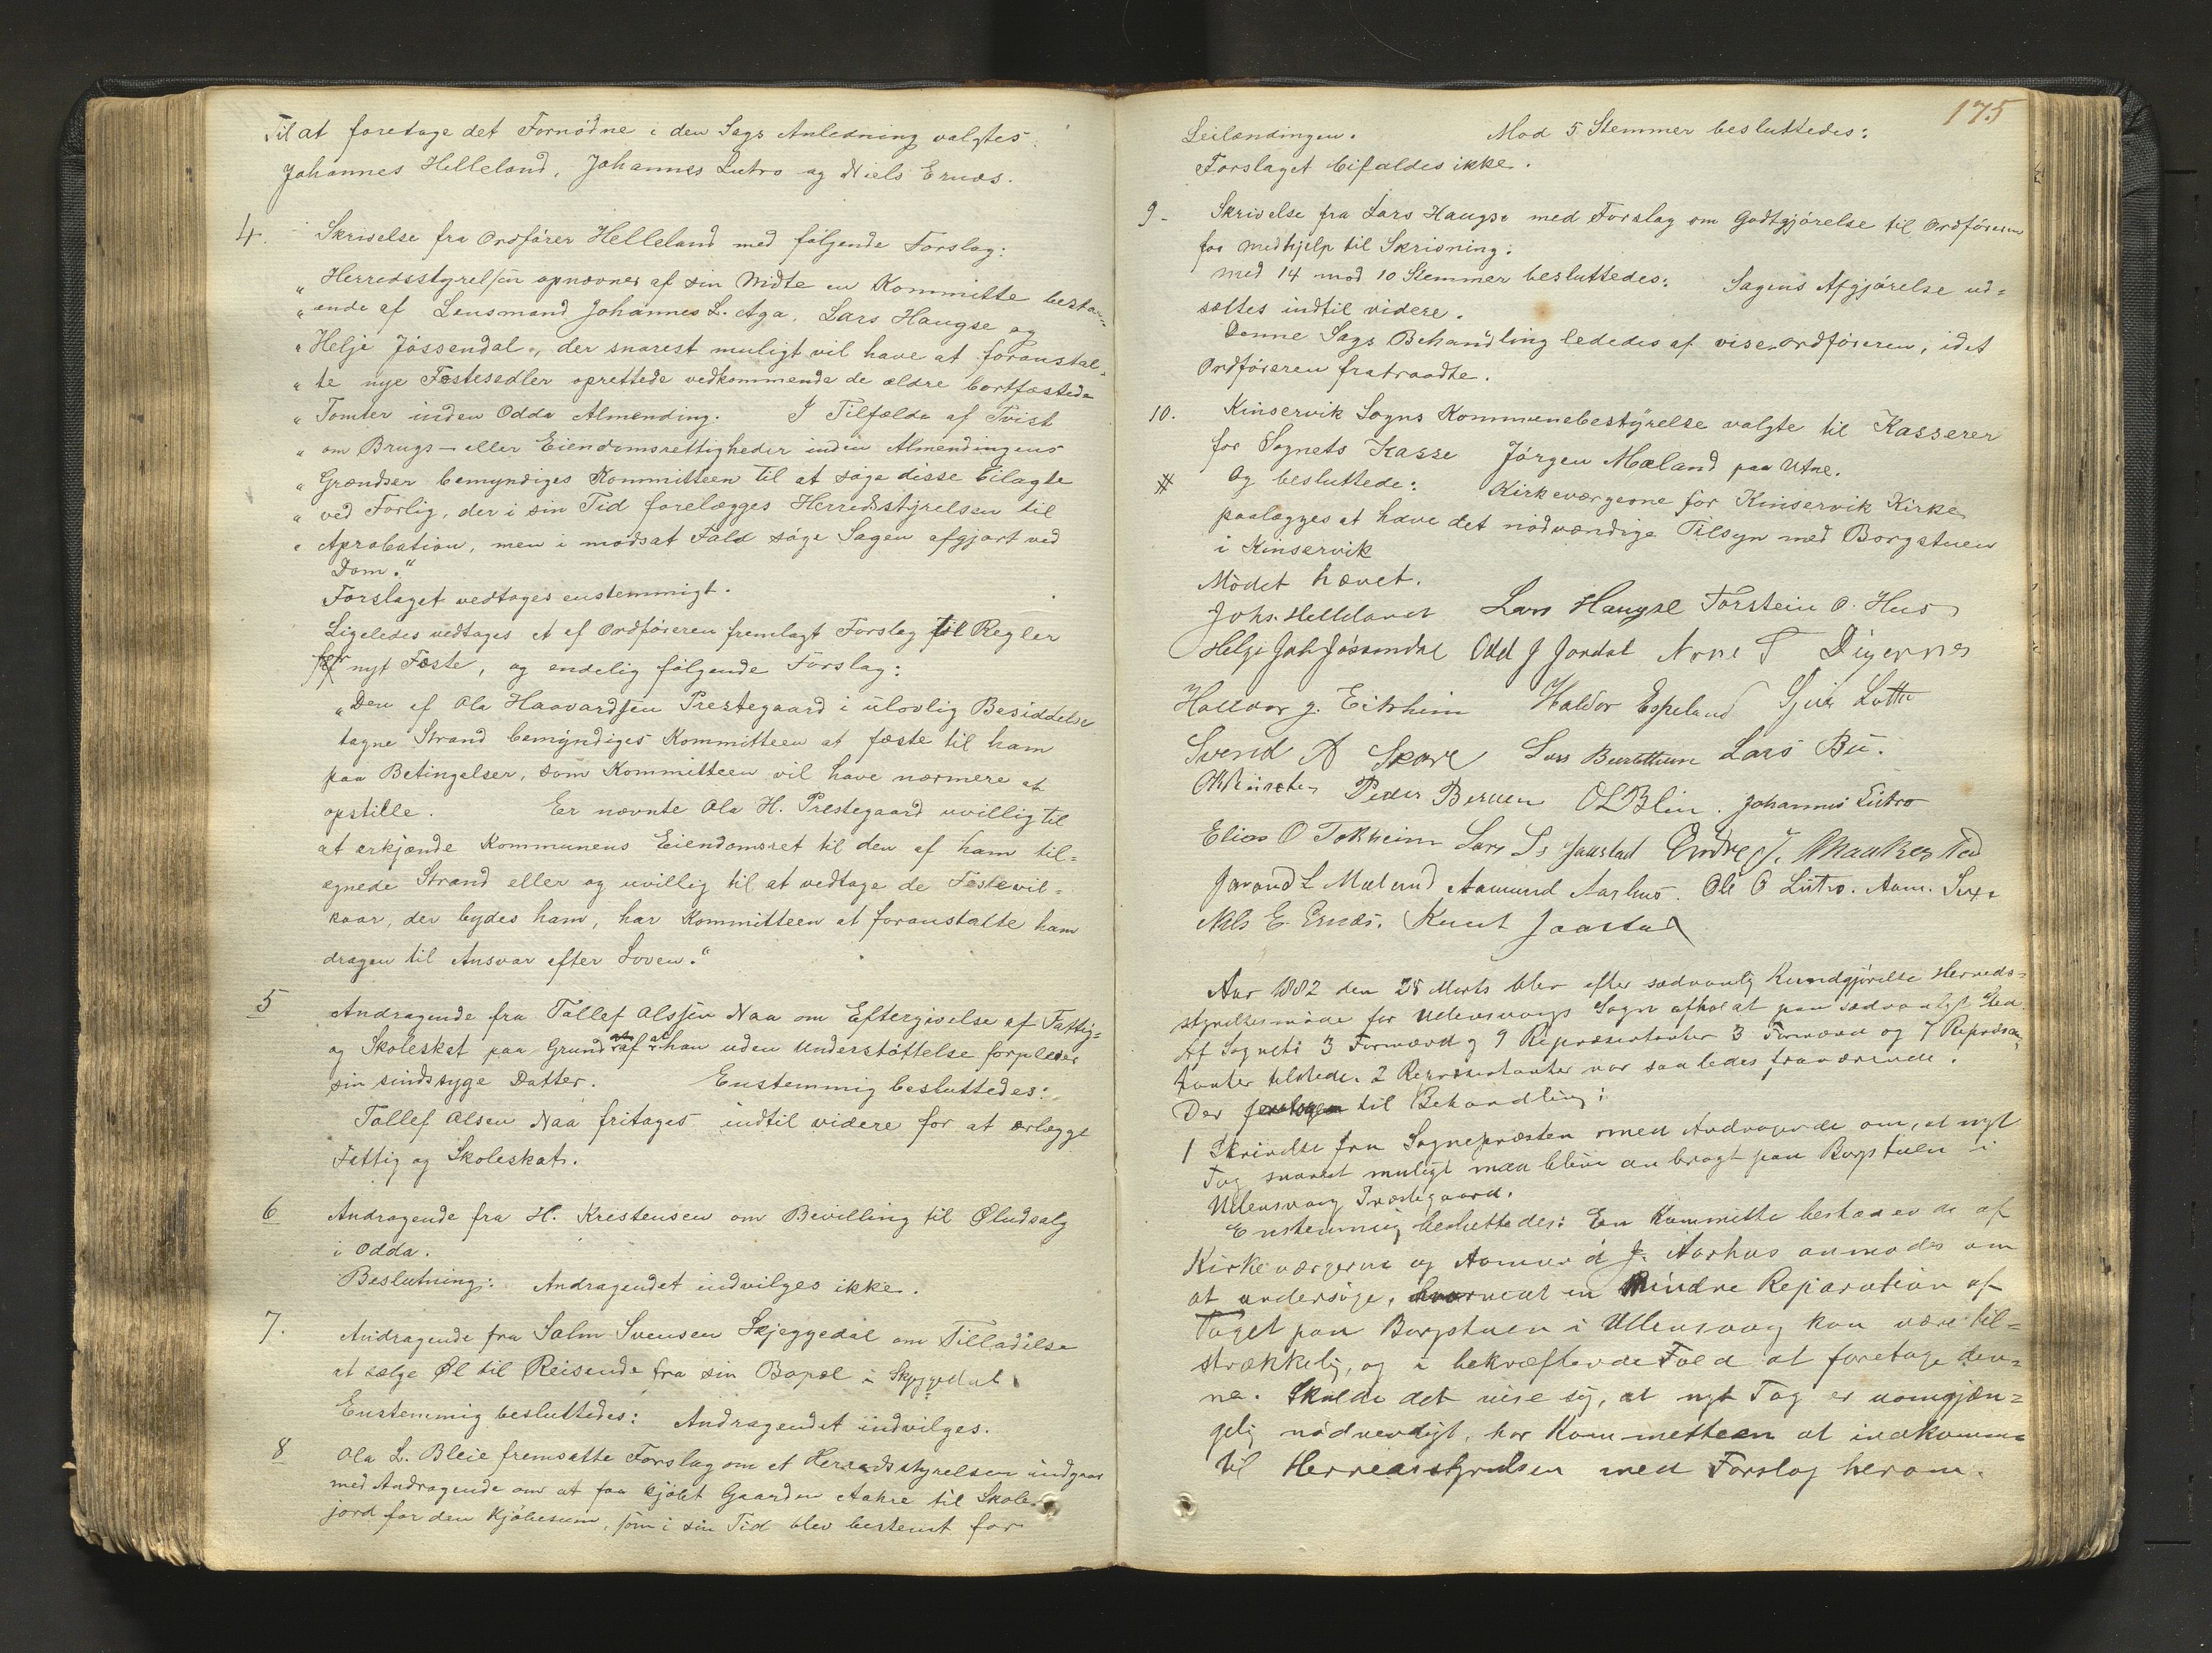 Til at foretage det Fornødne i den Sags Anledning valgtes
Johannes Helleland, Johannes Lutro og Niels Ernæs.
4. Skrivelse fra Ordfører Helleland med følgende Forslag:
„Herredsstyrelsen opnævner af sin Midte en Kommitte besta-
„ende af Lensmand Johannes L. Aga, Lars Haugse og
„Helje Jøssendal, der snarest muligt vil have at foranstal-
„te nye Festesedler oprettede vedkommende de ældre bortfæstede
„Tomter inden Odda Almending. I Tilfælde af Tvist
„om Brugs- eller Eiendomsrettigheder inden Almendingens
„Grændser bemyndiges Kommitteen til at søge disse bilagte
„ved Forlig, der i sin Tid forelægges Herredsstyrelsen til
„Aprobation, men i modsat Fald søge Sagen afgjort ved
Dom.“
Forslaget vedtages enstemmigt.
Ligeledes vedtages et af Ordføreren fremlagt Forslag til Regler
for nyt Feste, og endelig følgende Forslag:
„Den af Ola Haavardsen Prestegaard i ulovlig Besiddelse
tagne Strand bemyndiges Kommitteen at fæste til ham
paa Betingelser, som Kommitteen vil have nærmere at
opstille. Er nævnte Ola H. Prestegaard uvillig til
at erkjænde Kommunens Eiendomsret til den af ham til=
egnede Strand eller og uvillig til at vedtage de Festevil=
kaar, der bydes ham, har Kommitteen at foranstalte ham
dragen til Ansvar efter Loven.“
5 Andragende fra Tollef Olssen Naa om Eftergivelse af Fattig=
og Skoleskat paa Grund af at han uden Understøttelse forpleier
sin sindssyge Datter. Enstemmig besluttedes:
Tollef Olsen Naa fritages indtil videre for at erlægge
Fattig og Skoleskat.
6 Andragende fra H. Kristensen om Bevilling til Øludsalg
i Odda.
Beslutning: Andragendet indvilges ikke.
7. Andragende fra Salm Svensen Skjeggedal om Tilladelse
at sælge Øl til Reisende fra sin Bopæl i Skjeggedal
Enstemmig besluttedes: Andragendet indvilges.
8 Ola L. Bleie fremsatte Forslag om at Herredsstyrelsen indgaar
med Andragende om at faa kjøbt Gaarden Aakre til Skole-
jord for den Kjøbesum, som i sin Tid blev bestemt for
175
Leilændingen. Mod 5 Stemmer besluttedes:
Forslaget bifaldes ikke.
9- Skrivelse fra Lars Haugse med Forslag om Godtgjørelse til Ordføreren
for medhjelp til Skrivning.
Med 14 mod 10 Stemmer besluttedes: Sagens Afgjørelse ud=
sættes indtil videre.
Denne Sags Behandling lededes af viseordføreren, idet
Ordføreren fratraadte.
10. Kinservik Sogns Kommunebestyrelse valgte til Kasserer
for Sognets Kasse Jørgen Mæland paa Utne.
# Og besluttede: Kirkeværgerne for Kinservik Kirke
paalægges at have det nødvændige Tilsyn med Borgstuen
i Kinservik
Mødet hævet.
Johs. Helleland Lars Haugse Torstein O. Hus
Helje Joh Jøssendal Odd J Jordal Arne T Digernes
Halvor G. Eitrheim Haldor Espeland Sjur Lothe
Svend A Skare Lars Lars Bu.
Peder Berven O L Blie. Johannes Lutro
Elias O Tokheim Lars Ls Jaastad Endre J. Maakestad
Jørand L Mæland Aamund Aarhus. Ole O Lutro. Aam. Sexe
Nils E. Ernæs. Knut Jaastad
Aar 1882 den 28 Marts blev efter sædvanlig Kundgjørelse Herreds=
styrelsesmøde for Ullensvangs Sogn afholdt paa sædvanligt Sted.
Af Sognets 3 Formænd og 9 Repræsentanter 3 Formænd og 7 Repræsen=
tanter tilstede. 2 Repræsentanter var saaledes fraværende.
Der foretoges til Behandling:
1 Skrivelse fra Sognepræsten med Andragende om, at nyt
Tag snarest muligt maa blive anbragt paa Borgstuen i
Ullensvang Præstegaard.
Enstemmig besluttedes: En Kommitte bestaaende af
Kirkeværgerne og Aamund J. Aarhus anmodes om
at undersøge, hvorvidt en Mindre Reparation af
Taget paa Borgstuen i Ullensvang kan være til=
strækkelig, og i bekræftende Fald at foretage den=
ne. Skulde det vise sig, at nyt Tag er uomgjæn=
gelig nødvendigt, har Kommetteen at indkomme
til Herredsstyrelsen med Forslag herom.